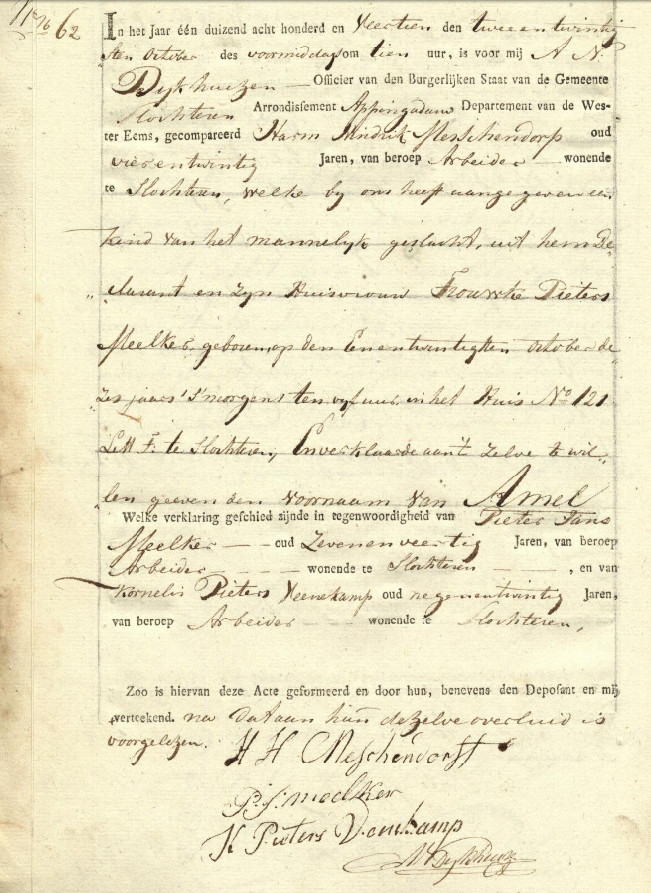 62 In het Jaar één duizend acht honderd en veertien den tweeentwintig
sten October des voormiddags om tien uur, is voor mij A N.
Dijkhuizen Officier van den Burgerlijken Staat van de Gemeente
Slochteren Arrondissement Appingadam Departement van de Wes-
ter Eems, gecompareerd Harm Hindrik Messchendorp oud
vierentwintig Jaren, van beroep Arbeider wonende
te Slochteren, welke by ons heeft aangegeven een
kind van het mannelyk geslacht, uit hem De-
clarant en zyn Huisvrouw Trouwke Pieters
Meelker, geboren op den Eenentwintigsten October de-
zes jaars 's morgens ten vyf uur in het Huis No 121
Lett F. te Slochteren, En verklaarde aan 't zelve te wil-
len geeven den voornaam van Amel
Welke verklaring geschied sijnde in tegenwoordigheid van Pieter Jans
Meelker oud Zevenenveertig Jaren, van beroep
Arbeider wonende te Slochteren , en van
Kornelis Pieters Veenekamp oud negenentwintig Jaren,
van beroep Arbeider wonende te Slochteren,
Zoo is hiervan deze Acte geformeerd en door hun, benevens den Deposant en mij
verteekend. na dat aan hun dezelve overluid is
voorgelezen. H H Meschendorff
P. J. meelker
K Pieters Venekamp